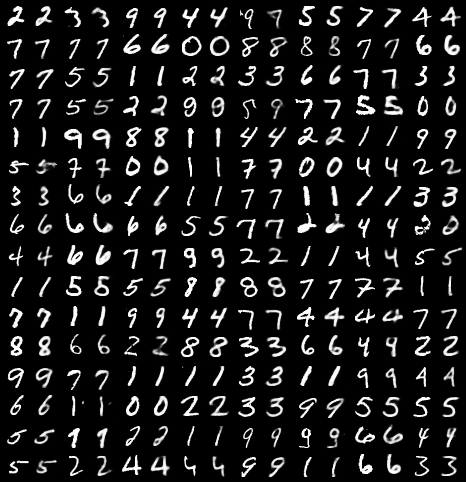 2 2 3 3 9 9 4 4 9 7 5 5 7 7 4 4
7 7 7 7 6 6 0 0 8 8 8 8 7 7 6 6
7 7 5 5 1 1 2 2 3 3 6 6 7 7 3 3
7 7 5 5 2 2 9 9 7 7 5 5 0 0
1 1 9 9 8 8 1 1 4 4 2 2 1 1 9 9
5 5 7 7 0 0 1 1 7 7 0 0 4 4 2 2
3 3 6 6 1 1 1 1 7 7 1 1 1 1 3 3
6 6 6 6 6 6 5 5 7 7 2 2 4 4 0
4 4 6 6 7 7 9 9 2 2 1 1 4 4 5 5
1 1 5 5 5 5 8 8 8 8 7 7 7 7 1 1
7 7 1 1 9 9 4 4 7 7 4 4 4 4 7 7
8 8 6 6 2 2 8 8 3 3 6 6 4 4 2 2
9 9 7 7 1 1 1 1 3 3 1 1 9 9 4 4
6 6 1 1 0 0 2 2 3 3 9 9 5 5 5 5
5 5 1 1 2 2 1 1 9 9 9 9 6 6 4 4
5 5 2 2 4 4 4 4 9 9 1 1 6 6 3 3